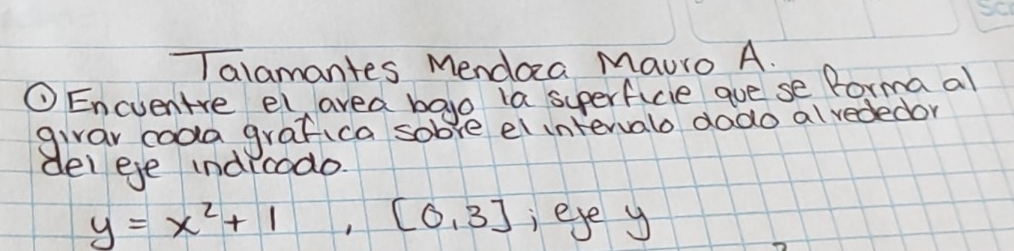 Talamantes Mendoza Mauro A.
① Encuentre el area bajo la superficie que se forma al
girar cada gráfica sobre el intervalo dado alrededor
del eje indicado.
y = x² + 1 , [0,3] ; eje y